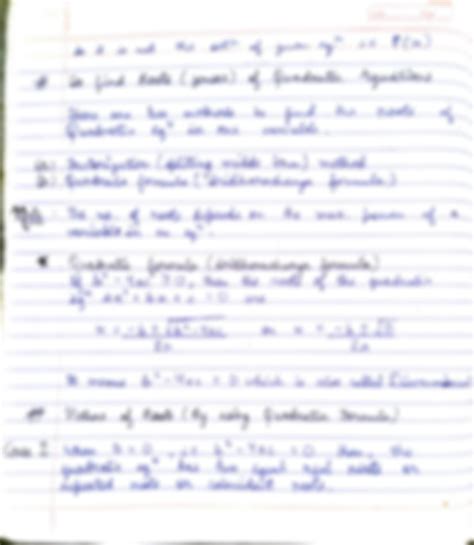 So it is not the solⁿ of given eqⁿ i.e. P(x)
# To find Roots (zeroes) of Quadratic Equations
There are two methods to find the roots of
Quadratic Eqⁿ in one variable.
(a) Factorization (splitting middle term) method
(b) Quadratic formula (Sridharacharya formula)
The no. of roots depends on the max. power of a
variable in an eqⁿ.
Quadratic formula (Sridharacharya formula)
If b² - 4ac ≥ 0, then the roots of the quadratic
eqⁿ ax² + bx + c = 0 are
x = -b ± √b² - 4ac / 2a or x = -b ± √D / 2a
It means b² - 4ac = D which is also called Discriminant
Nature of Roots (By using Quadratic Formula)
Case I When D = 0, i.e. b² - 4ac = 0 then, the
quadratic eqⁿ has two equal real roots or
repeated roots or coincident roots.